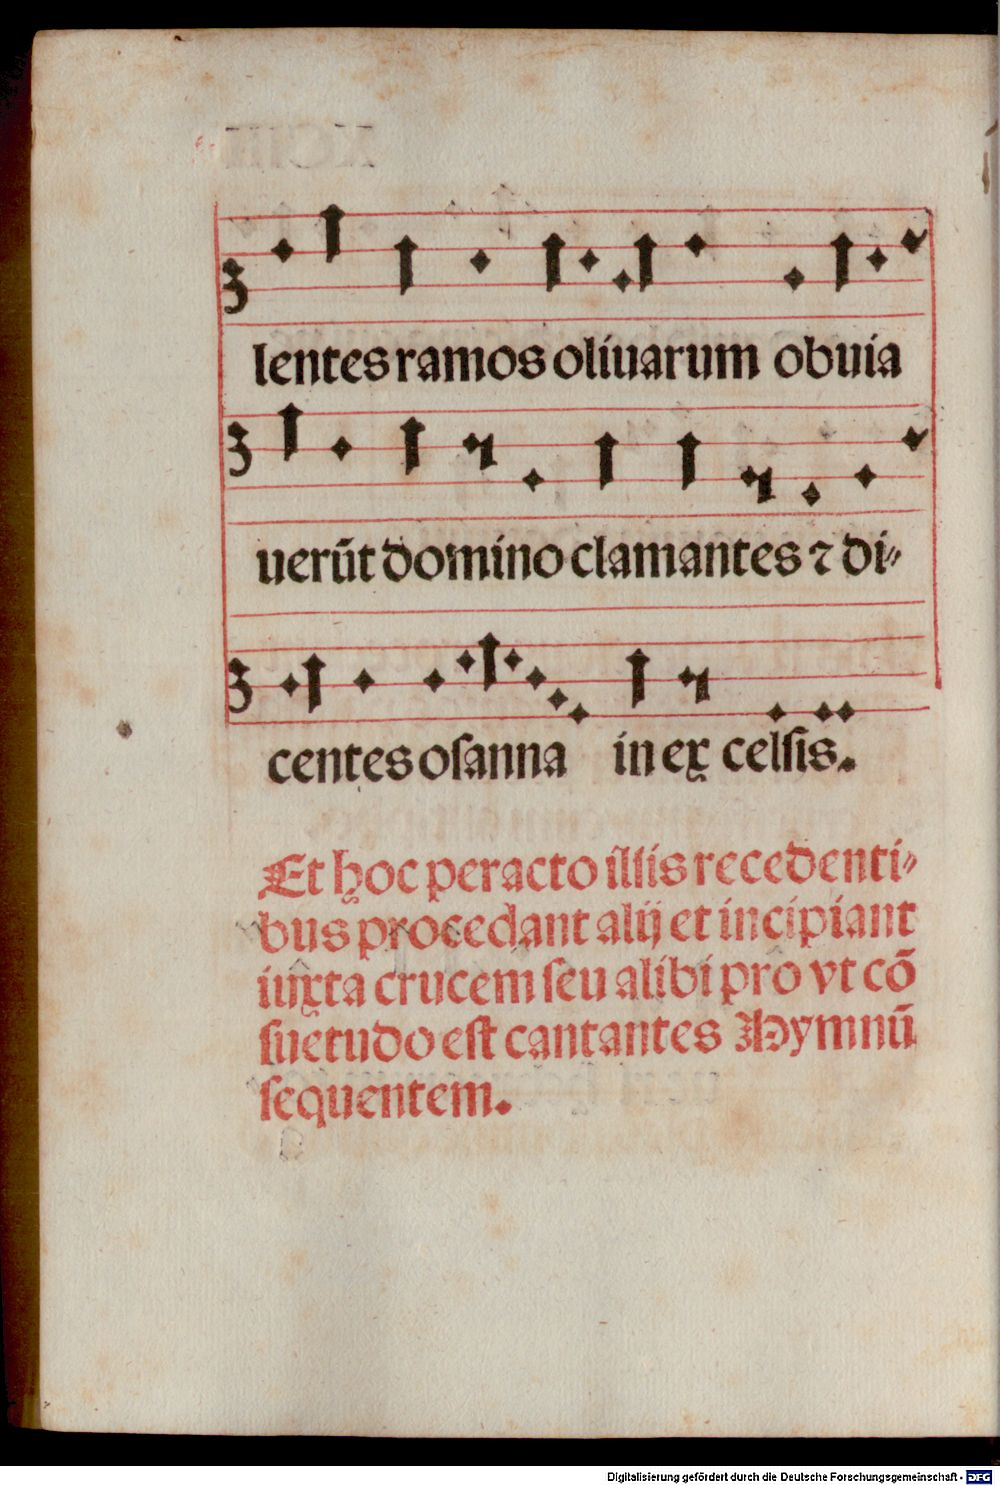 lentes ramos oliuarum obuia
uerūt domino clamantes ⁊ di⸗
centes osanna in ex celsis.
Et hoc peracto illis recedenti⸗
bus procedant alij et incipiant
iuxta crucem seu alibi pro vt cō
suetudo est cantantes Hymnū
sequentem.
Digitalisierung gefördert durch die Deutsche Forschungsgemeinschaft - DFG